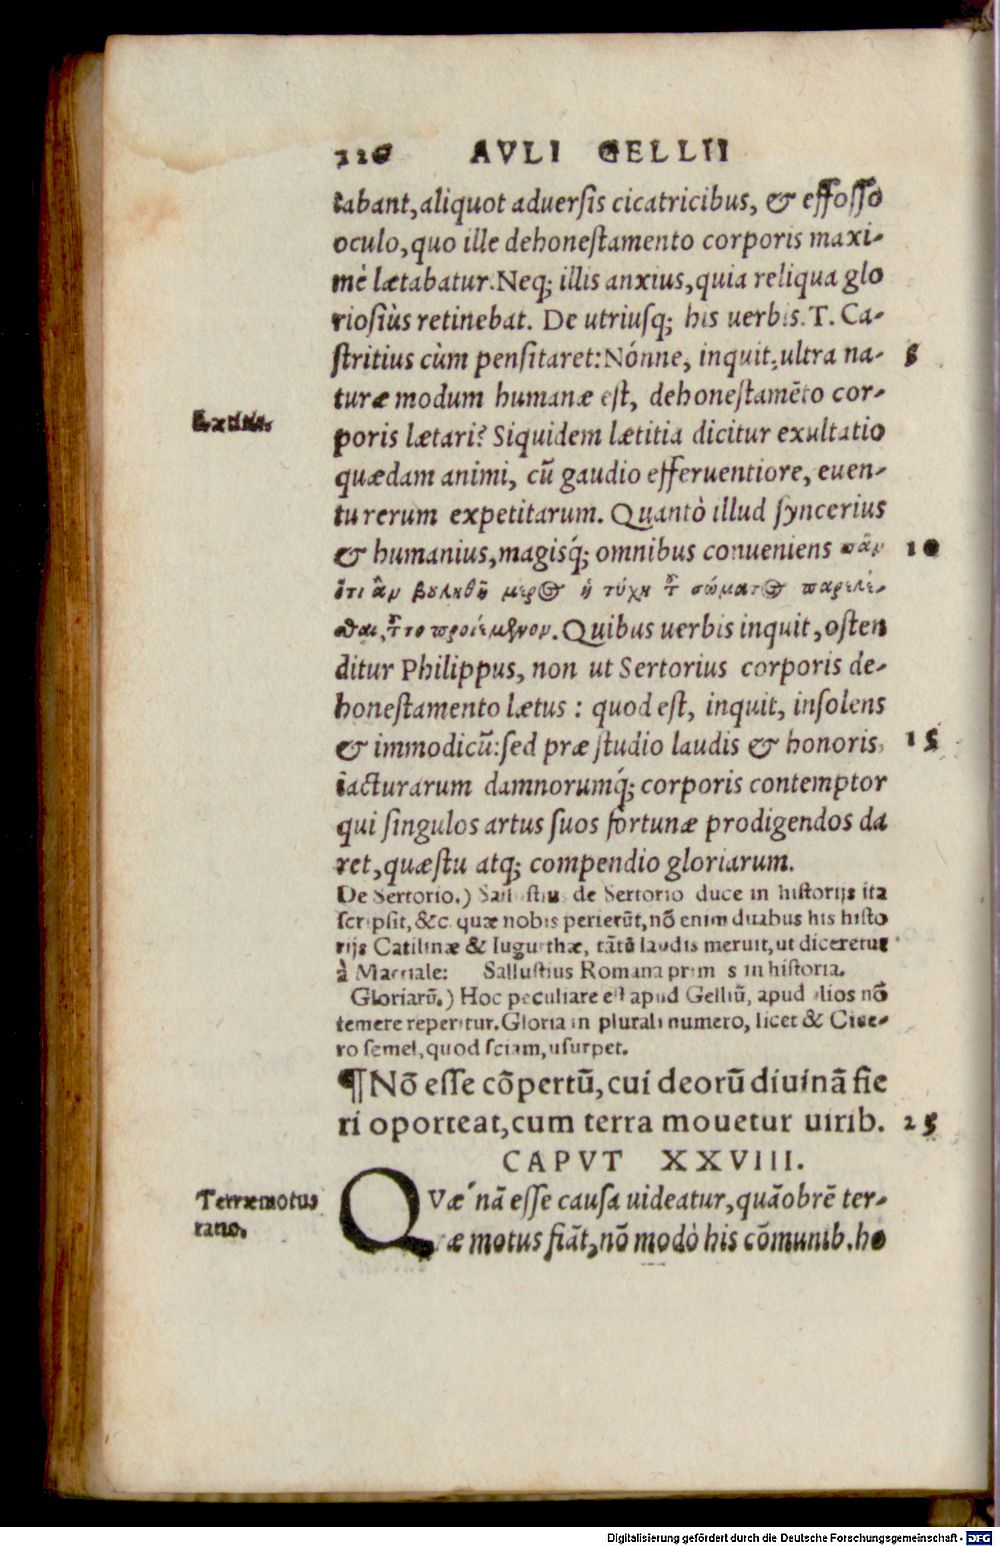 AVLI GELLII
tabant, aliquot aduersis cicatricibus, & effosso
oculo, quo ille dehonestamento corporis maxi-
mè lætabatur. Neq; illis anxius, quia reliqua glo
riosiùs retinebat. De utriusq; his uerbis. T. Ca-
stritius cùm pensitaret: Nónne, inquit, ultra na- 5
turæ modum humanæ est, dehonestamẽto cor-
poris lætari? Siquidem lætitia dicitur exultatio
quædam animi, cũ gaudio efferuentiore, euen-
tu rerum expetitarum. Quantò illud syncerius
& humanius, magisq́; omnibus conueniens πᾶν 10
ὅτι ἂν βουληθῇ μέρος ἡ τύχη τ σώματος παρελέ-
σθαι, τ το προϊέμενον. Quibus uerbis inquit, osten
ditur Philippus, non ut Sertorius corporis de-
honestamento lætus : quod est, inquit, insolens
& immodicũ: sed præ studio laudis & honoris, 15
iacturarum damnorumq́; corporis contemptor
qui singulos artus suos fortunæ prodigendos da
ret, quæstu atq; compendio gloriarum.
De Sertorio.) Sallustius de Sertorio duce in historijs ita
scripsit, &c. quæ nobis perierũt, nõ enim duabus his histo
rijs Catilinæ & Iugurthæ, tãtũ laudis meruit, ut diceretur
à Martiale: Sallustius Romana primus in historia.
Gloriarũ.) Hoc peculiare est apud Gelliũ, apud alios nõ
temere reperitur. Gloria in plurali numero, licet & Cice-
ro semel, quod sciam, usurpet.
¶ Nõ esse cõpertũ, cui deorũ diuinã fie
ri oporteat, cum terra mouetur uirib. 25
CAPVT XXVIII.
Terræmotus
ratio.
QVæ´ nã esse causa uideatur, quãobrẽ ter-
æ motus fiãt, nõ modò his cõmunib. ho
Digitalisierung gefördert durch die Deutsche Forschungsgemeinschaft - DFG